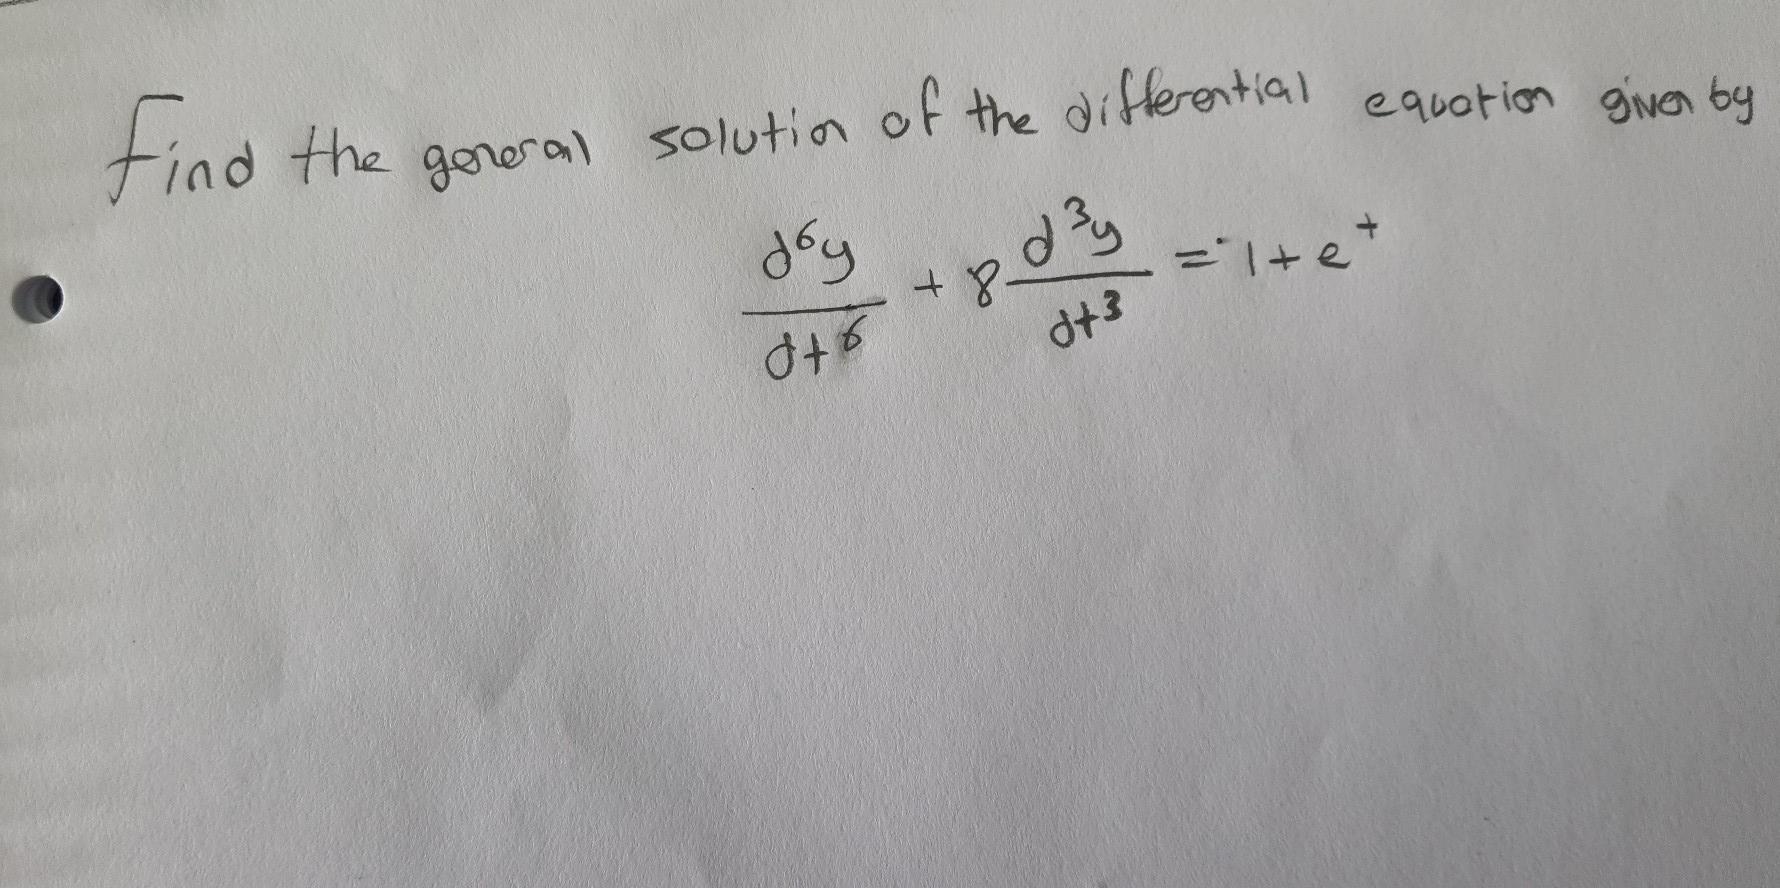 Find the general solution of the differential equation given by
d⁶y/dt⁶ + 8 d³y/dt³ = 1 + e^t